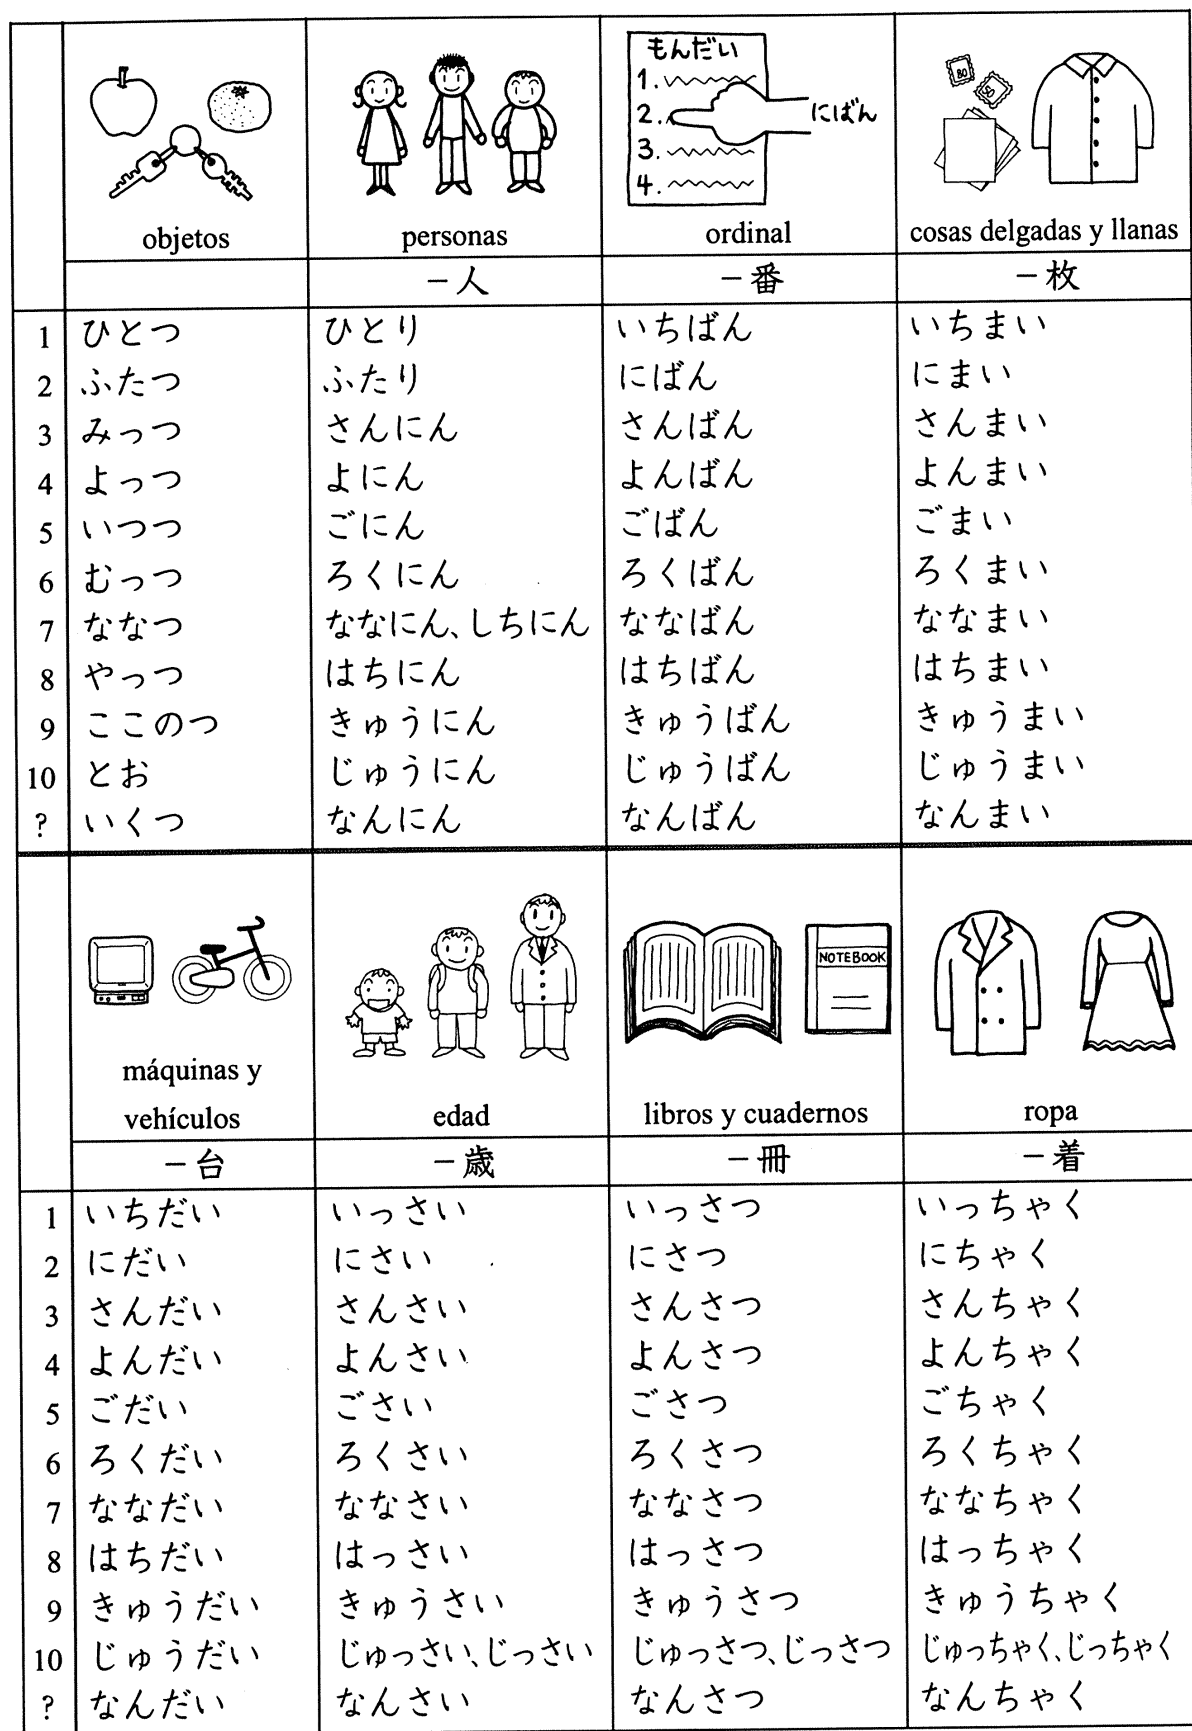 もんだい
1.
2. にばん
3.
4.
80
50
objetos personas ordinal cosas delgadas y llanas
－人 －番 －枚
1 ひとつ ひとり いちばん いちまい
2 ふたつ ふたり にばん にまい
3 みっつ さんにん さんばん さんまい
4 よっつ よにん よんばん よんまい
5 いつつ ごにん ごばん ごまい
6 むっつ ろくにん ろくばん ろくまい
7 ななつ ななにん、しちにん ななばん ななまい
8 やっつ はちにん はちばん はちまい
9 ここのつ きゅうにん きゅうばん きゅうまい
10 とお じゅうにん じゅうばん じゅうまい
? いくつ なんにん なんばん なんまい
NOTEBOOK
máquinas y
vehículos edad libros y cuadernos ropa
－台 －歳 －冊 －着
1 いちだい いっさい いっさつ いっちゃく
2 にだい にさい にさつ にちゃく
3 さんだい さんさい さんさつ さんちゃく
4 よんだい よんさい よんさつ よんちゃく
5 ごだい ごさい ごさつ ごちゃく
6 ろくだい ろくさい ろくさつ ろくちゃく
7 ななだい ななさい ななさつ ななちゃく
8 はちだい はっさい はっさつ はっちゃく
9 きゅうだい きゅうさい きゅうさつ きゅうちゃく
10 じゅうだい じゅっさい、じっさい じゅっさつ、じっさつ じゅっちゃく、じっちゃく
? なんだい なんさい なんさつ なんちゃく